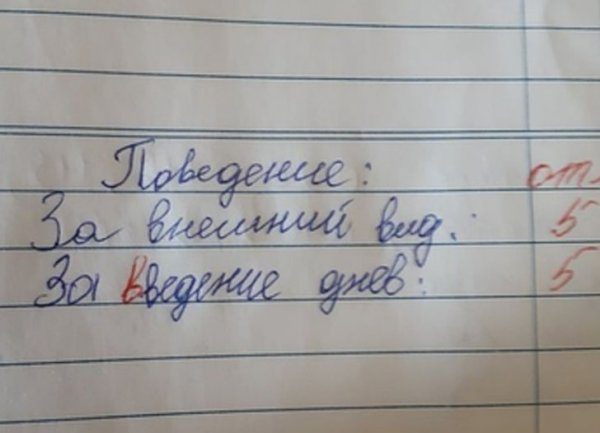 Поведение: от.
За внешний вид.: 5
За Введение днев: 5